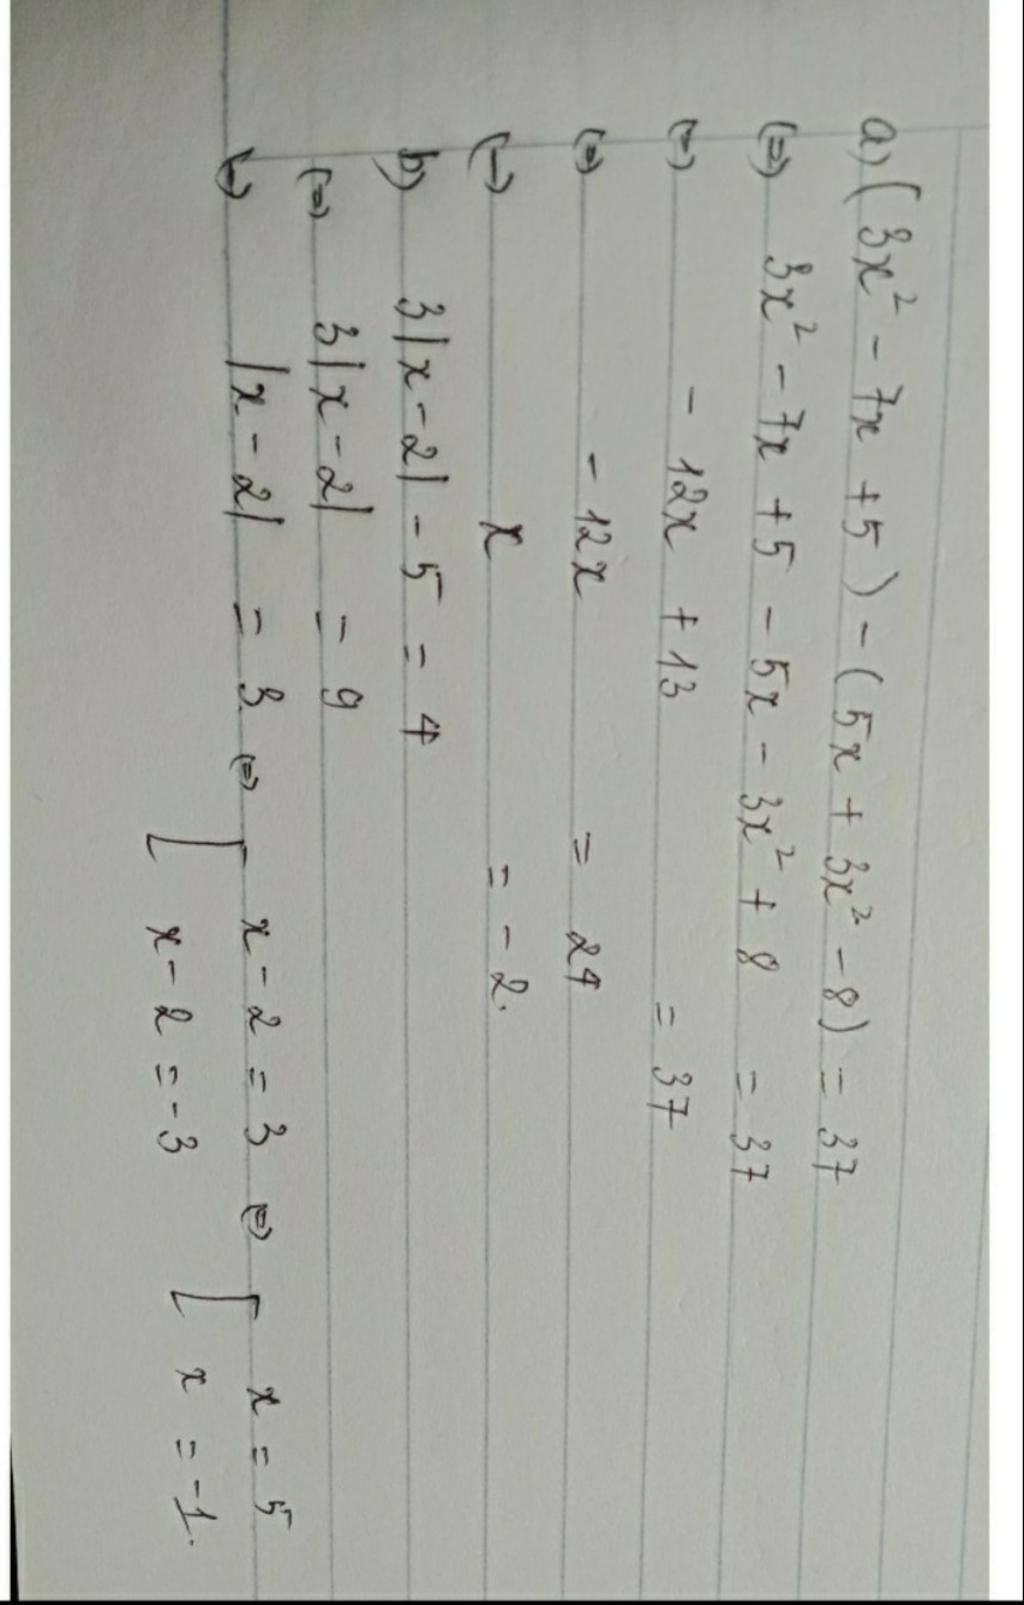 a) (3x² - 7x + 5) - (5x + 3x² - 8) = 37
(=) 3x² - 7x + 5 - 5x - 3x² + 8 = 37
(=) - 12x + 13 = 37
(=) - 12x = 24
(=) x = - 2.
b) 3|x - 2| - 5 = 4
(=) 3|x - 2| = 9
(=) |x - 2| = 3 (=) [ x - 2 = 3 (=) [ x = 5
x - 2 = - 3 x = -1.